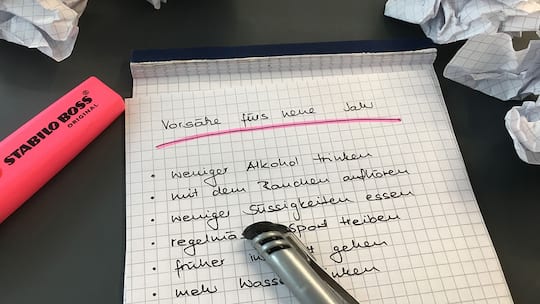 STABILO BOSS
ORIGINAL
Vorsähe fürs neue Jahr
• weniger Alkohol trinken
• mit dem Rauchen aufhören
• weniger Süssigkeiten essen
• regelmä sport treiben
• früher i t gehen
• mehr Wasse inken